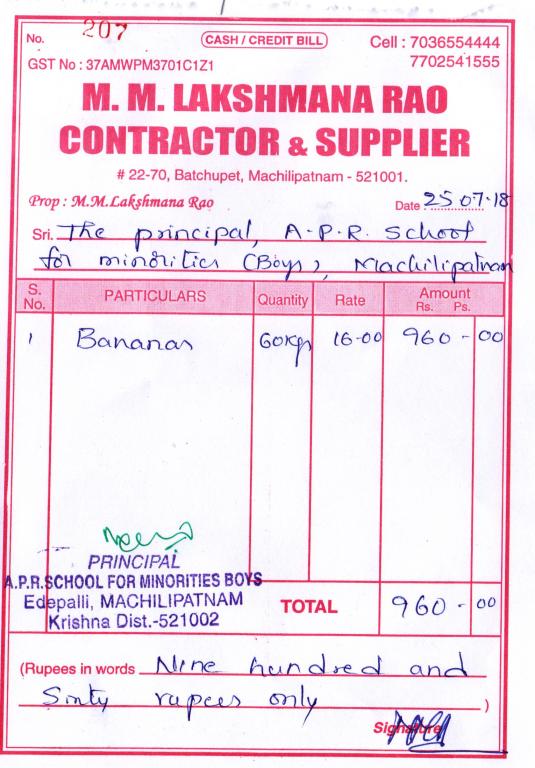 No. 207 CASH / CREDIT BILL Cell : 7036554444
GST No : 37AMWPM3701C1Z1 7702541555
M. M. LAKSHMANA RAO
CONTRACTOR & SUPPLIER
# 22-70, Batchupet, Machilipatnam - 521001.
Prop : M.M.Lakshmana Rao Date 25 07.18
Sri. The principal, A.P.R. School
for minorities (Boys), Machilipatnam
S. No. PARTICULARS Quantity Rate Amount Rs. Ps.
1 Bananas 60Kgs 16-00 960-00
PRINCIPAL
A.P.R.SCHOOL FOR MINORITIES BOYS
Edepalli, MACHILIPATNAM
Krishna Dist.-521002
TOTAL 960-00
(Rupees in words Nine hundred and
Sixty rupees only )
Signature